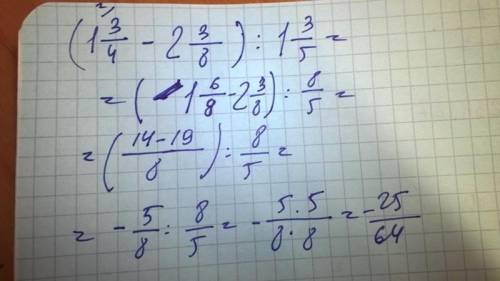 (1 3/4 - 2 3/8) : 1 3/5 =
= (1 6/8 - 2 3/8) : 8/5 =
= (14-19/8) : 8/5 =
= - 5/8 : 8/5 = - 5·5/8·8 = -25/64